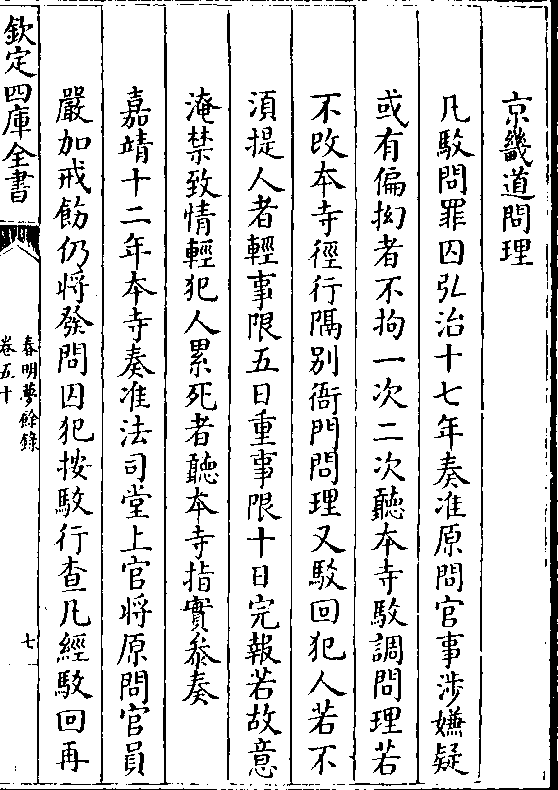 京畿道問理
凡駁問罪囚弘治十七年奏准原問官事涉嫌疑
或有偏拗者不拘一次二次聽本寺駁調問理若
不改本寺徑行隔别衙門問理又駁回犯人若不
湏提人者輕事限五日重事限十日完報若故意
淹禁致情輕犯人累死者聽本寺指實叅奏
嘉靖十二年本寺奏准法司堂上官將原問官員
嚴加戒飭仍將發問囚犯按駁行查凡經駁回再
欽定四庫全書
春明夢餘錄
卷五十
七